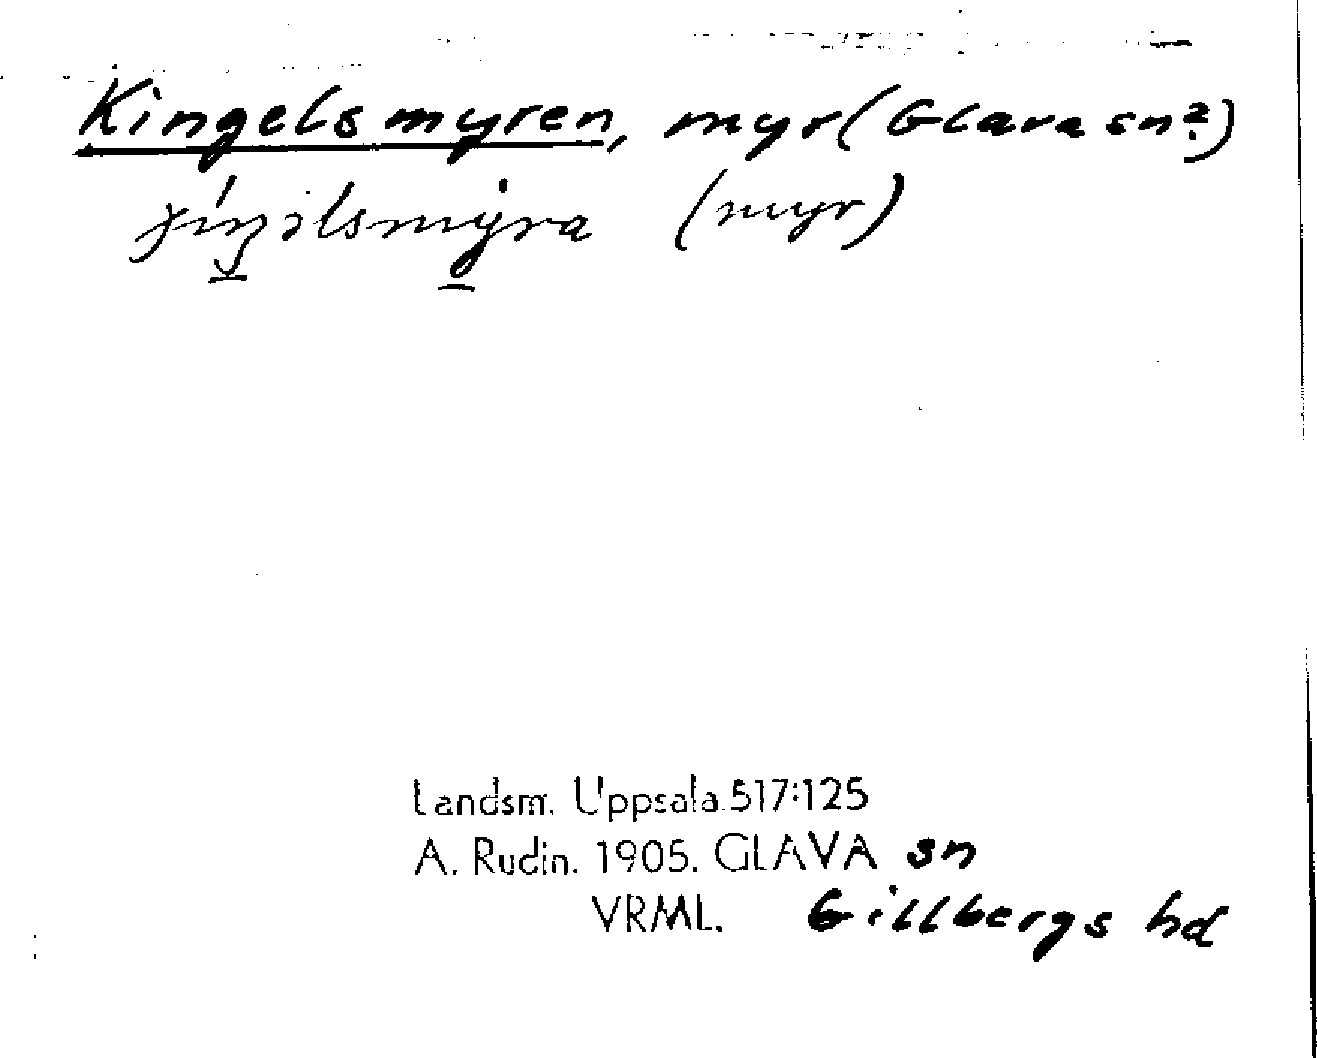 Kingelsmyren, myr (Glava sn?)
(myr)
Landsm. Uppsala 517:125
A. Rudin. 1905. GLAVA sn
VRML. Gillbergs hd